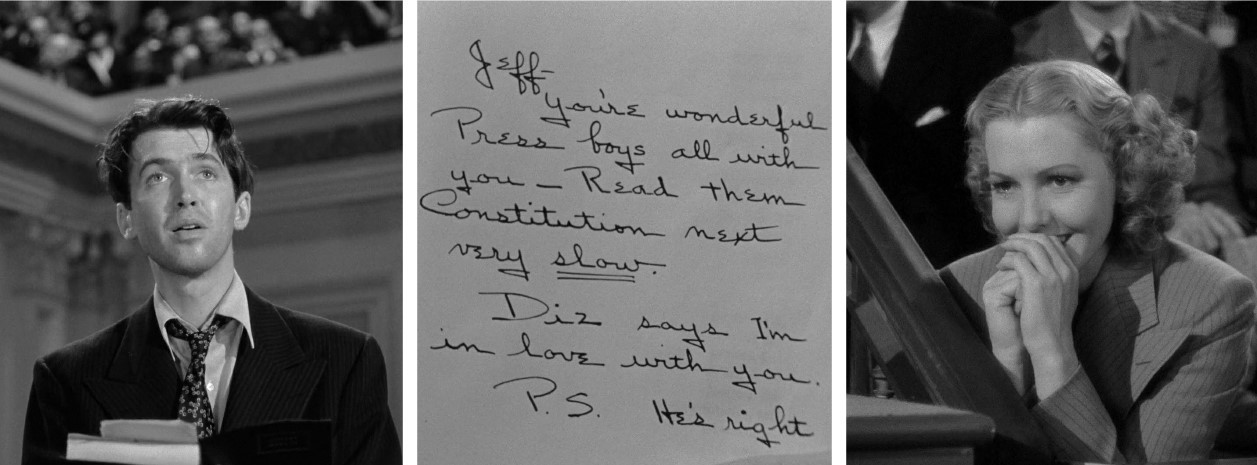 Jeff-
you're wonderful
Press boys all with
you – Read them
Constitution next
very slow.
Diz says I'm
in love with you.
P.S. He's right